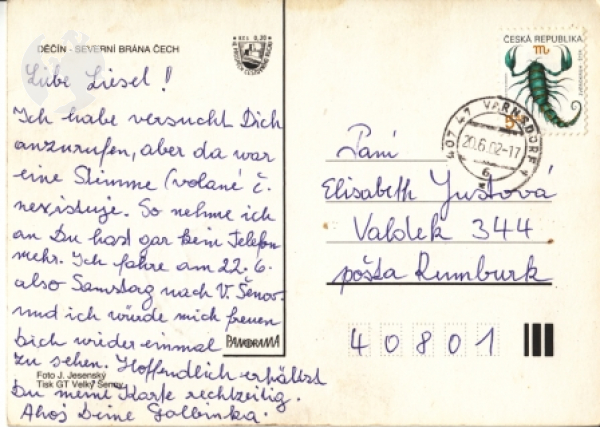 DĚČÍN - SEVERNÍ BRÁNA ČECH
Liebe Liesel!
Ich habe versucht Dich
anzurufen, aber da war
eine Stimme (volané č.
neexistuje. So nehme ich
an Du hast gar kein Telefon
mehr. Ich fahre am 22.6.
also Samstag nach V. Šenov
und ich würde mich freuen
Dich wieder einmal
zu sehen. Hoffendlich erhältst
Du meine Karte rechtzeitig.
Ahoj Deine
PANORAMA
Foto J. Jesenský
Tisk GT Velký Šenov
ČESKÁ REPUBLIKA
407 47 VARNSDORF 1
20.6.02-17
6
Paní
Elisabeth Justová
Valdek 344
pošta Rumburk
40801